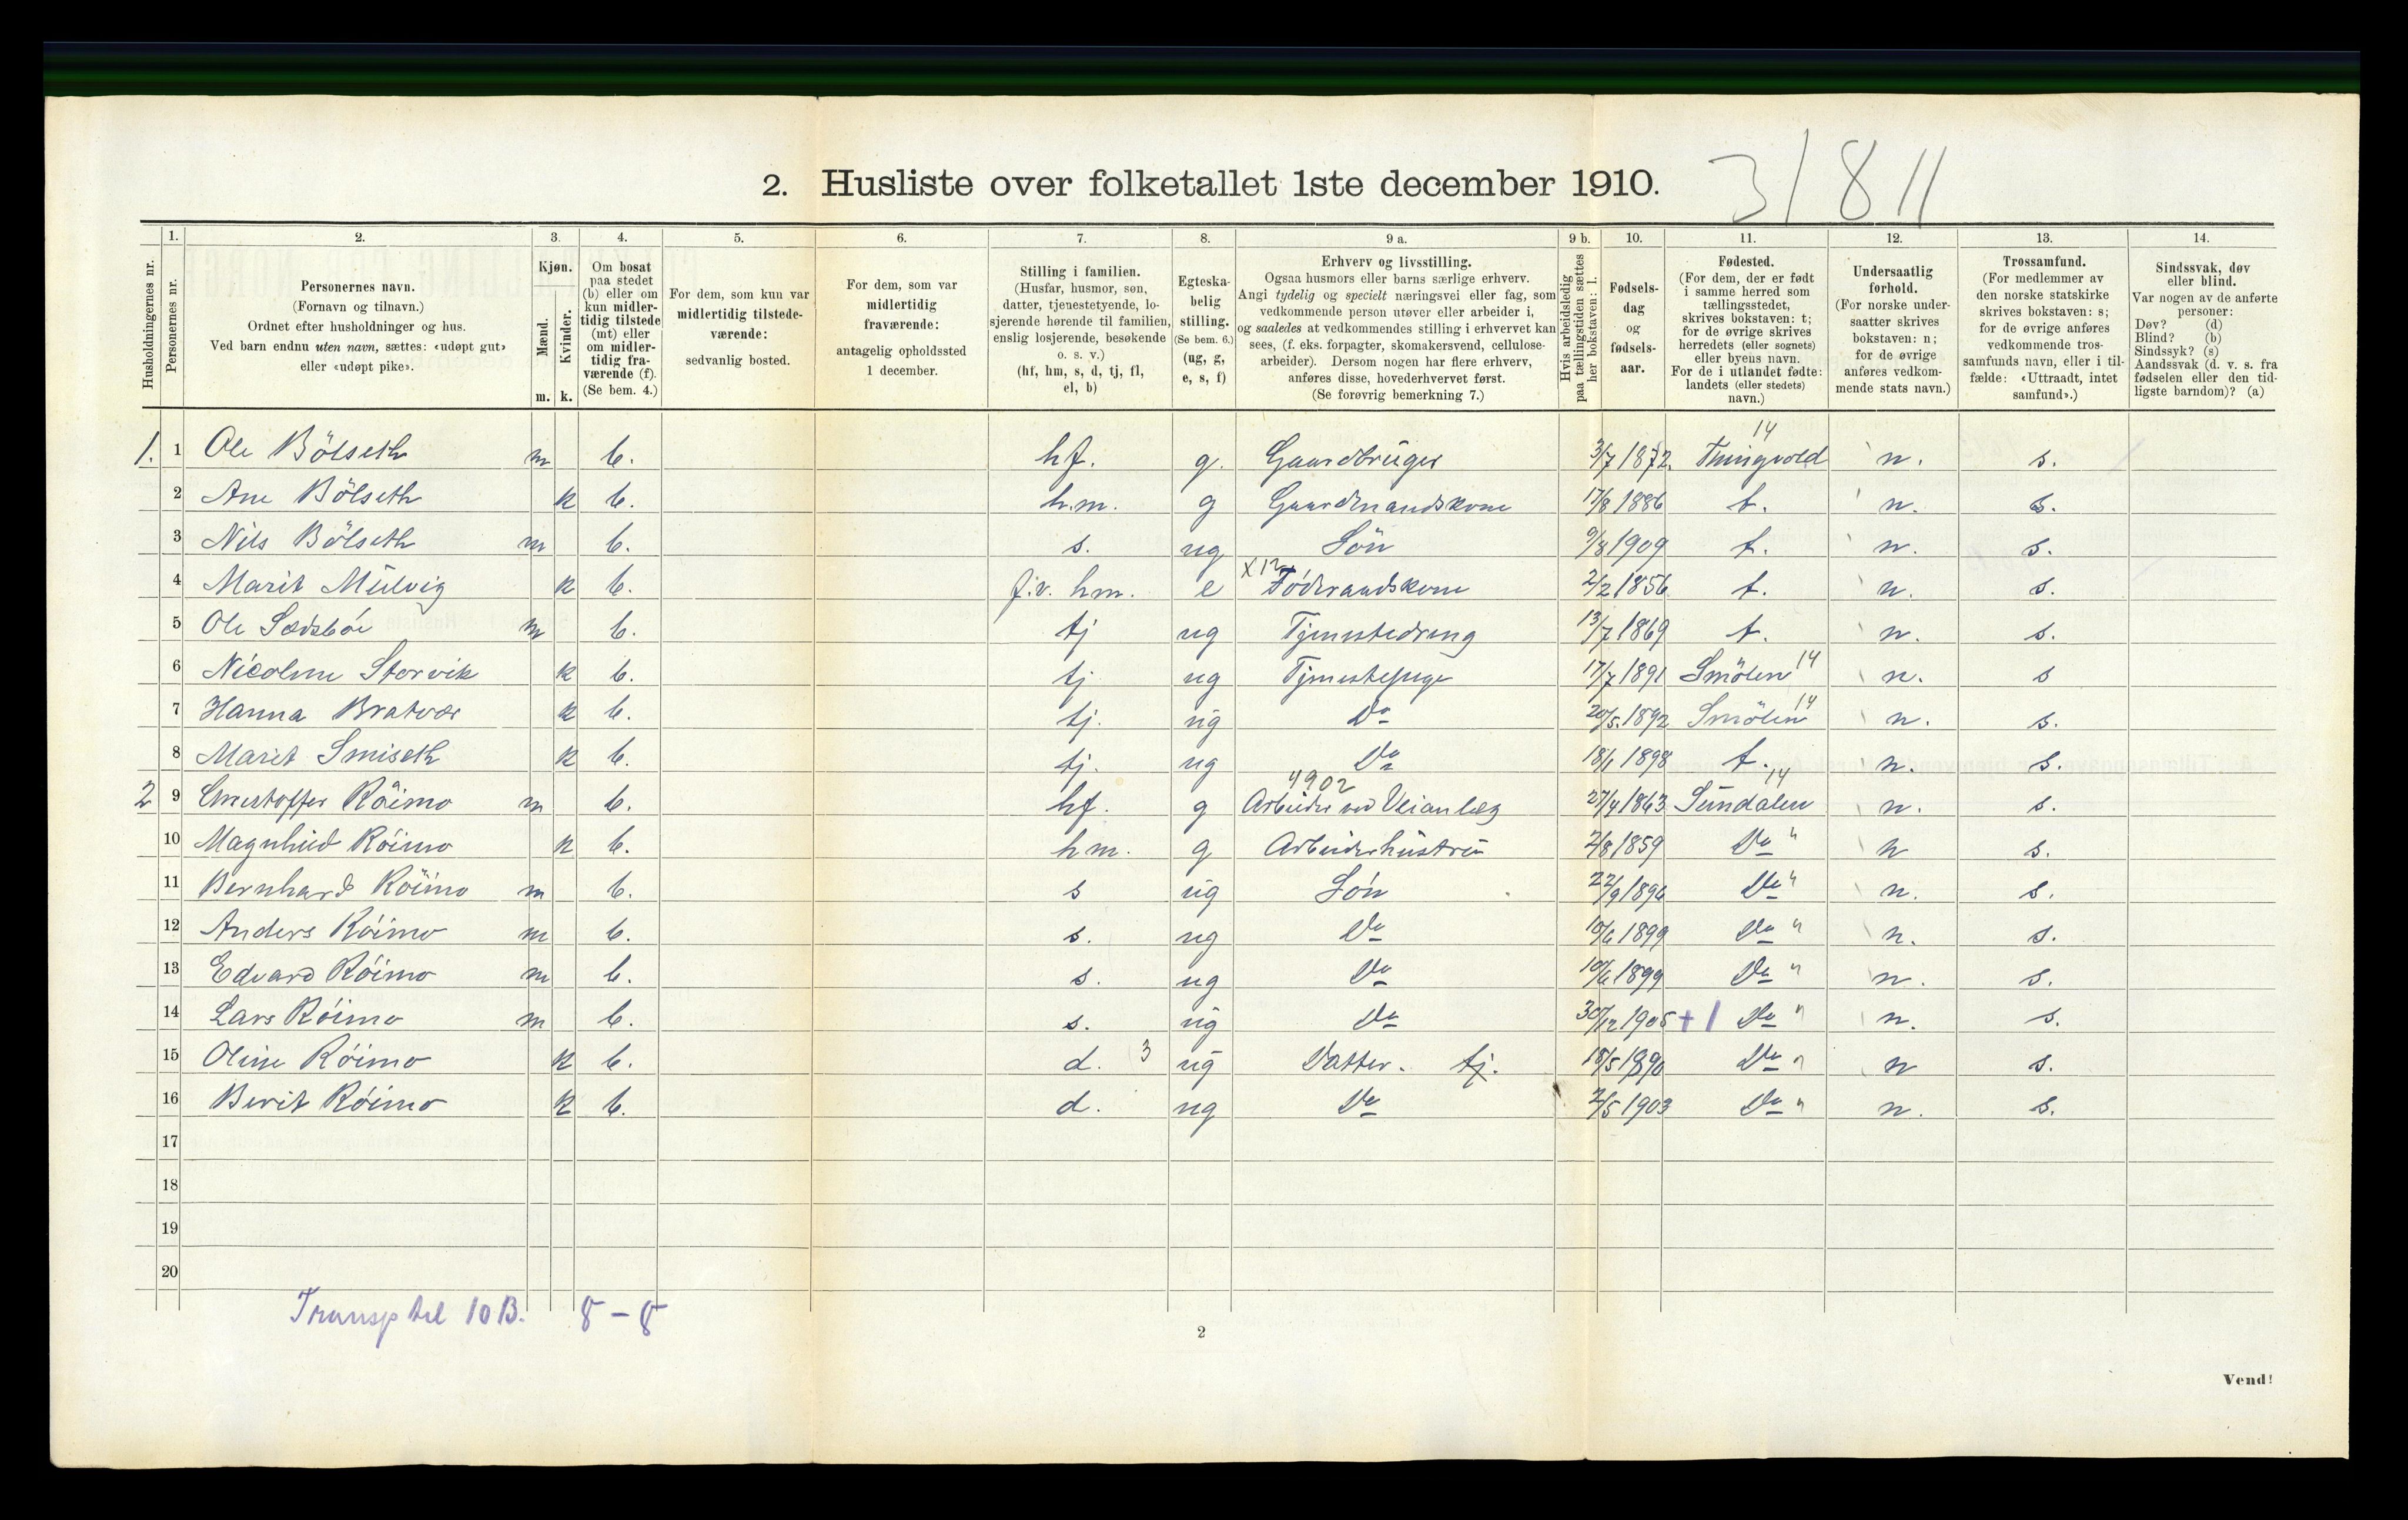 31811
2. Husliste over folketallet 1ste december 1910.
Husholdningernes nr.
1. Personernes nr.
2. Personernes navn. (Fornavn og tilnavn.) Ordnet efter husholdninger og hus. Ved barn endnu uten navn, sættes: «udøpt gut» eller «udøpt pike».
3. Kjøn. Mænd. m. Kvinder. k.
4. Om bosat paa stedet (b) eller om kun midlertidig tilstede (mt) eller om midlertidig fraværende (f). (Se bem. 4.)
5. For dem, som kun var midlertidig tilstedeværende: sedvanlig bosted.
6. For dem, som var midlertidig fraværende: antagelig opholdssted 1 december.
7. Stilling i familien. (Husfar, husmor, søn, datter, tjenestetyende, losjerende hørende til familien, enslig losjerende, besøkende o. s. v.) (hf, hm, s, d, tj, fl, el, b)
8. Egteskabelig stilling. (Se bem. 6.) (ug, g, e, s, f)
9 a. Erhverv og livsstilling. Ogsaa husmors eller barns særlige erhverv. Angi tydelig og specielt næringsvei eller fag, som vedkommende person utøver eller arbeider i, og saaledes at vedkommendes stilling i erhvervet kan sees, (f. eks. forpagter, skomakersvend, cellulosearbeider). Dersom nogen har flere erhverv, anføres disse, hovederhvervet først. (Se forøvrig bemerkning 7.)
9 b. Hvis arbeidsledig paa tællingstiden sættes her bokstaven: l.
10. Fødselsdag og fødselsaar.
11. Fødested. (For dem, der er født i samme herred som tællingsstedet, skrives bokstaven: t; for de øvrige skrives herredets (eller sognets) eller byens navn. For de i utlandet fødte: landets (eller stedets) navn.)
12. Undersaatlig forhold. (For norske undersaatter skrives bokstaven: n; for de øvrige anføres vedkommende stats navn.)
13. Trossamfund. (For medlemmer av den norske statskirke skrives bokstaven: s; for de øvrige anføres vedkommende trossamfunds navn, eller i tilfælde: «Uttraadt, intet samfund».)
14. Sindssvak, døv eller blind. Var nogen av de anførte personer: Døv? (d) Blind? (b) Sindssyk? (s) Aandssvak (d. v. s. fra fødselen eller den tidligste barndom)? (a)
1. 1 Ole Bölseth m b. hf. g. Gaardbruger 3/7 1872. Tingvold 14 n. s.
2 Ane Bölseth k b. h.m. g Gaardmandskone 17/8 1886 t. n. s.
3 Nils Bölseth m b. s. ug Sön 9/8 1909 t. n. s.
4 Marit Mulvig k b. f.v. hm. e X12 Föderaadskone 2/2 1856 t. n. s.
5 Ole Sædsböe m b. tj ug Tjenestedreng 13/7 1869 t. n. s.
6 Nicoline Storvik k b. tj ug Tjenestepige 17/7 1891 Smölen 14 n. s
7 Hanna Bratvær k b. tj. ug Do 20/5. 1892 Smölen 14 n. s.
8 Marit Smiseth k b. tj. ug Do 18/1 1898 t. n. s.
2 9 Christoffer Röimo m b. hf. g 4902 Arbeider ved Veianlæg 27/4 1863 Sundalen 14 n. s.
10 Magnhild Röimo k b. hm. g Arbeiderhustru 2/8 1859 Do " n s.
11 Bernhard Röimo m b. s ug Sön 22/9 1896 Do " n. s.
12 Anders Röimo m b. s. ug Do 10/6 1899 Do " n. s.
13 Edvard Röimo m b. s. ug Do 10/6 1899 Do " n. s.
14 Lars Röimo m b. s. ug Do 30/12 1905 +1 Do " n. s.
15 Oline Röimo k b. d. 3 ug Datter. tj. 18/5 1890 Do " n s.
16 Berit Röimo k b. d. ug Do 2/5 1903 Do " n. s.
17
18
19
20
Transp til 10 B. 8 – 8
2
Vend!